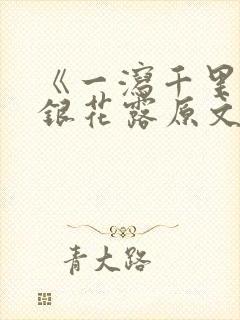 《一泻千里
银花露原文
青大路